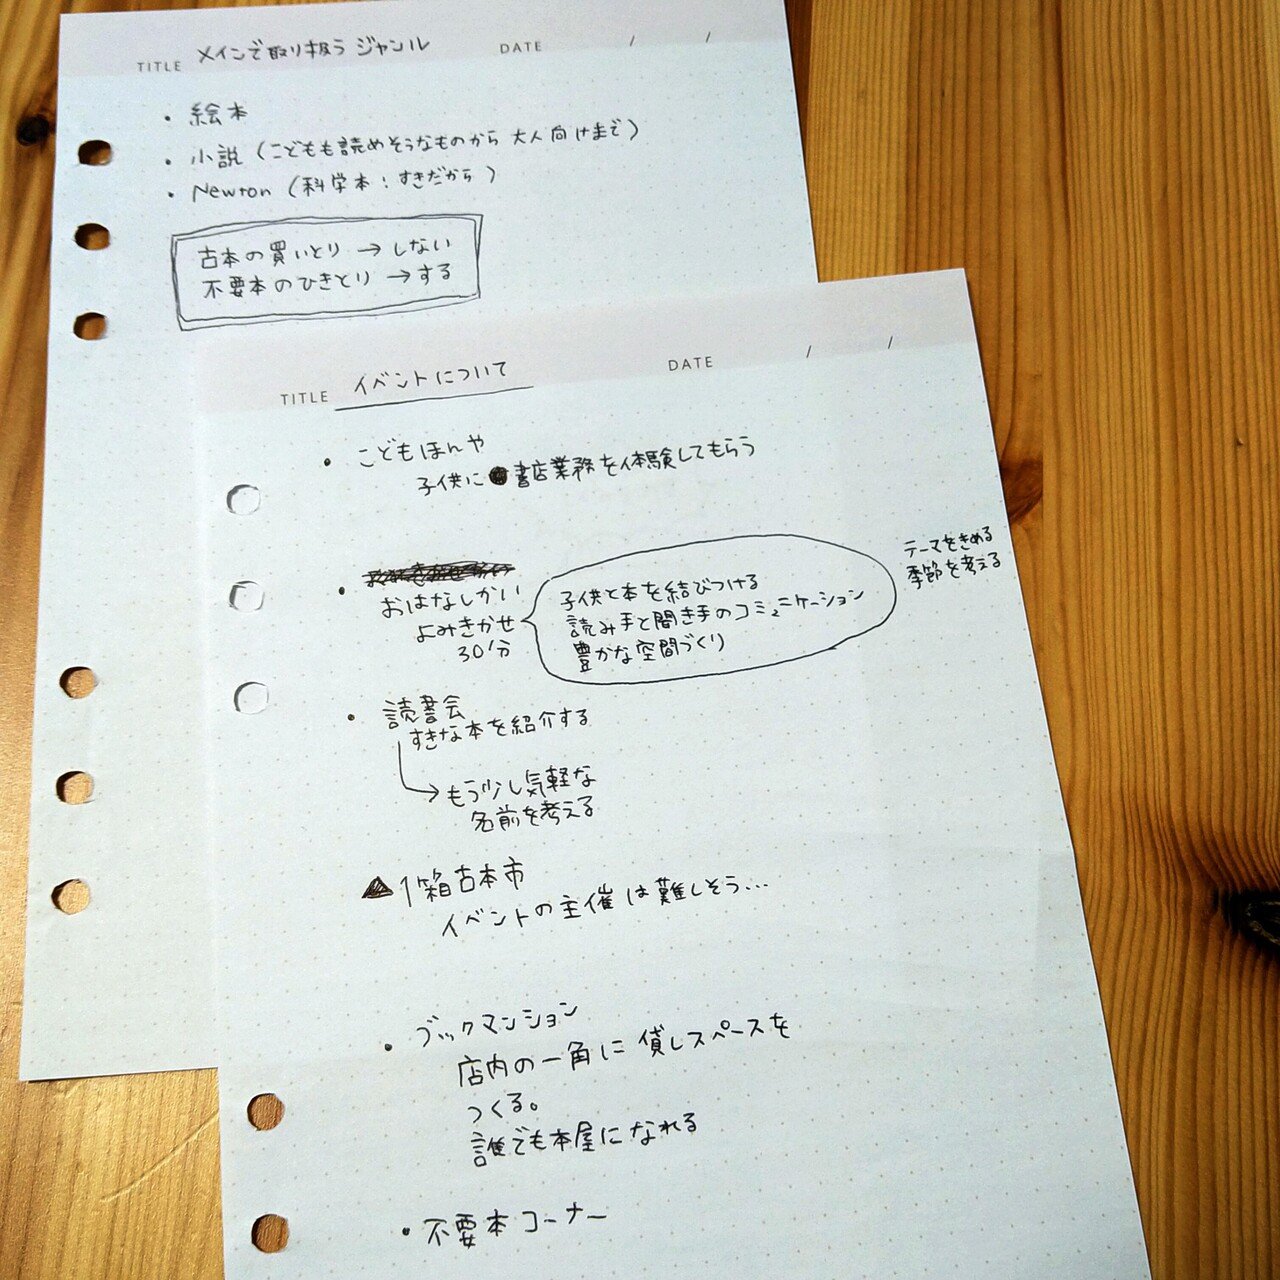 TITLE メインで取り扱う ジャンル DATE / /
・絵本
・小説（こどもも読めそうなものから 大人向けまで）
・Newton（科学本：すきだから）
古本の買いとり → しない
不要本のひきとり → する
TITLE イベントについて DATE / /
・こどもほんや
子供に 書店業務を体験してもらう
・おはなしかい
よみきかせ
30分
子供と本を結びつける
読み手と聞き手のコミュニケーション
豊かな空間づくり
テーマをきめる
季節を考える
・読書会
すきな本を紹介する
→もう少し気軽な
名前を考える
▲1箱古本市
イベントの主催は難しそう…
・ブックマンション
店内の一角に 貸しスペースを
つくる。
誰でも本屋になれる
・不要本コーナー